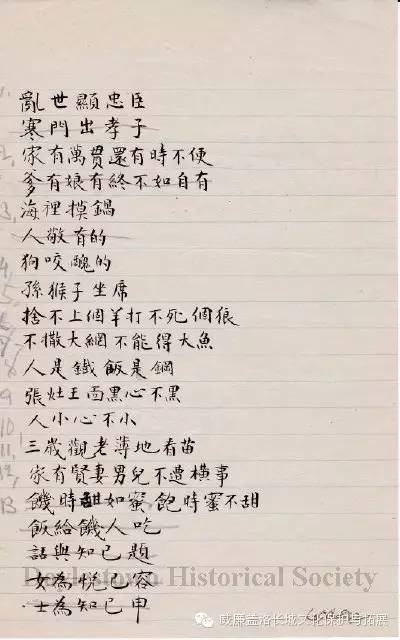 亂世顯忠臣
寒門出孝子
家有萬貫還有時不便
爹有娘有終不如自有
海裡摸鍋
人敬有的
狗咬醜的
孫猴子坐席
捨不上個羊打不死個狼
不撒大網不能得大魚
人是鐵飯是鋼
張灶王面黑心不黑
人小心不小
三歲觀老薄地看苗
家有賢妻男兒不遭橫事
饑時甜如蜜飽時蜜不甜
飯給饑人吃
話與知己題
女為悅己容
士為知己申
1.
2,
3,
4,
5
6
7
8
9
10
11,
12,
13
Doylestown Historical Society
威廉盖洛长城文化保护与拓展